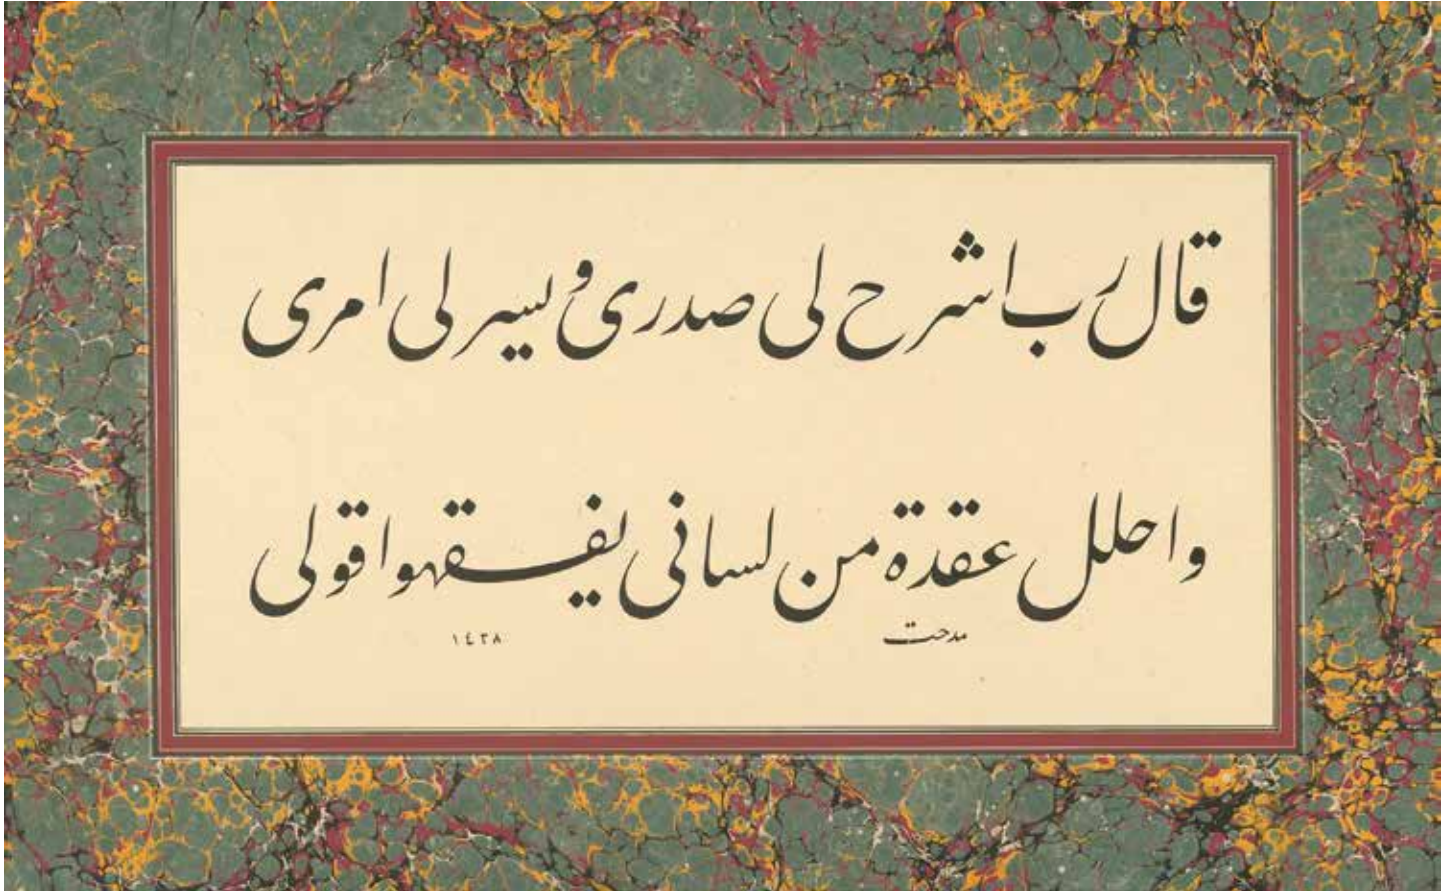 قال رب اشرح لی صدری و یسر لی امری
واحلل عقدة من لسانی یفقهوا قولی
مدحت
١٤٣٨